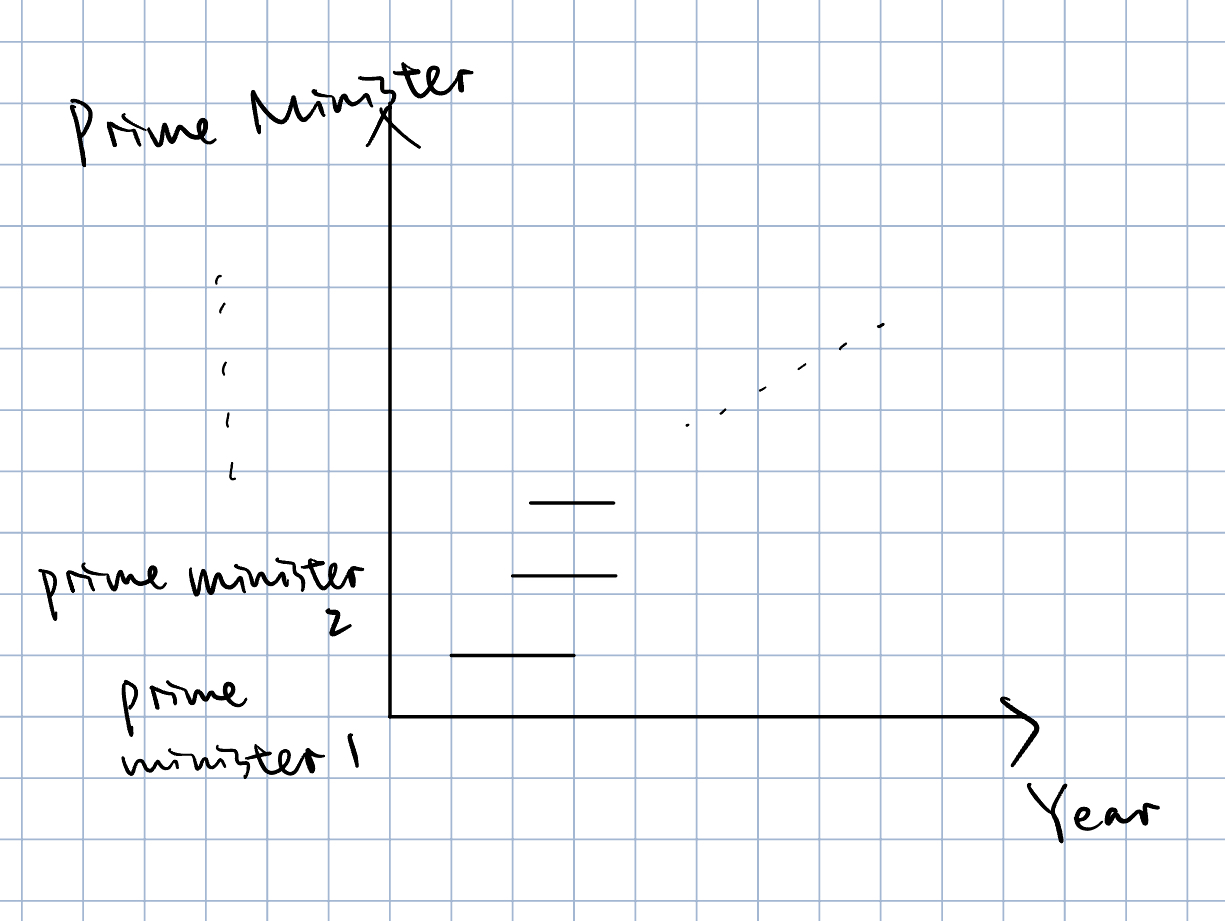 Prime Minister
prime minister
2
prime
minister 1
Year